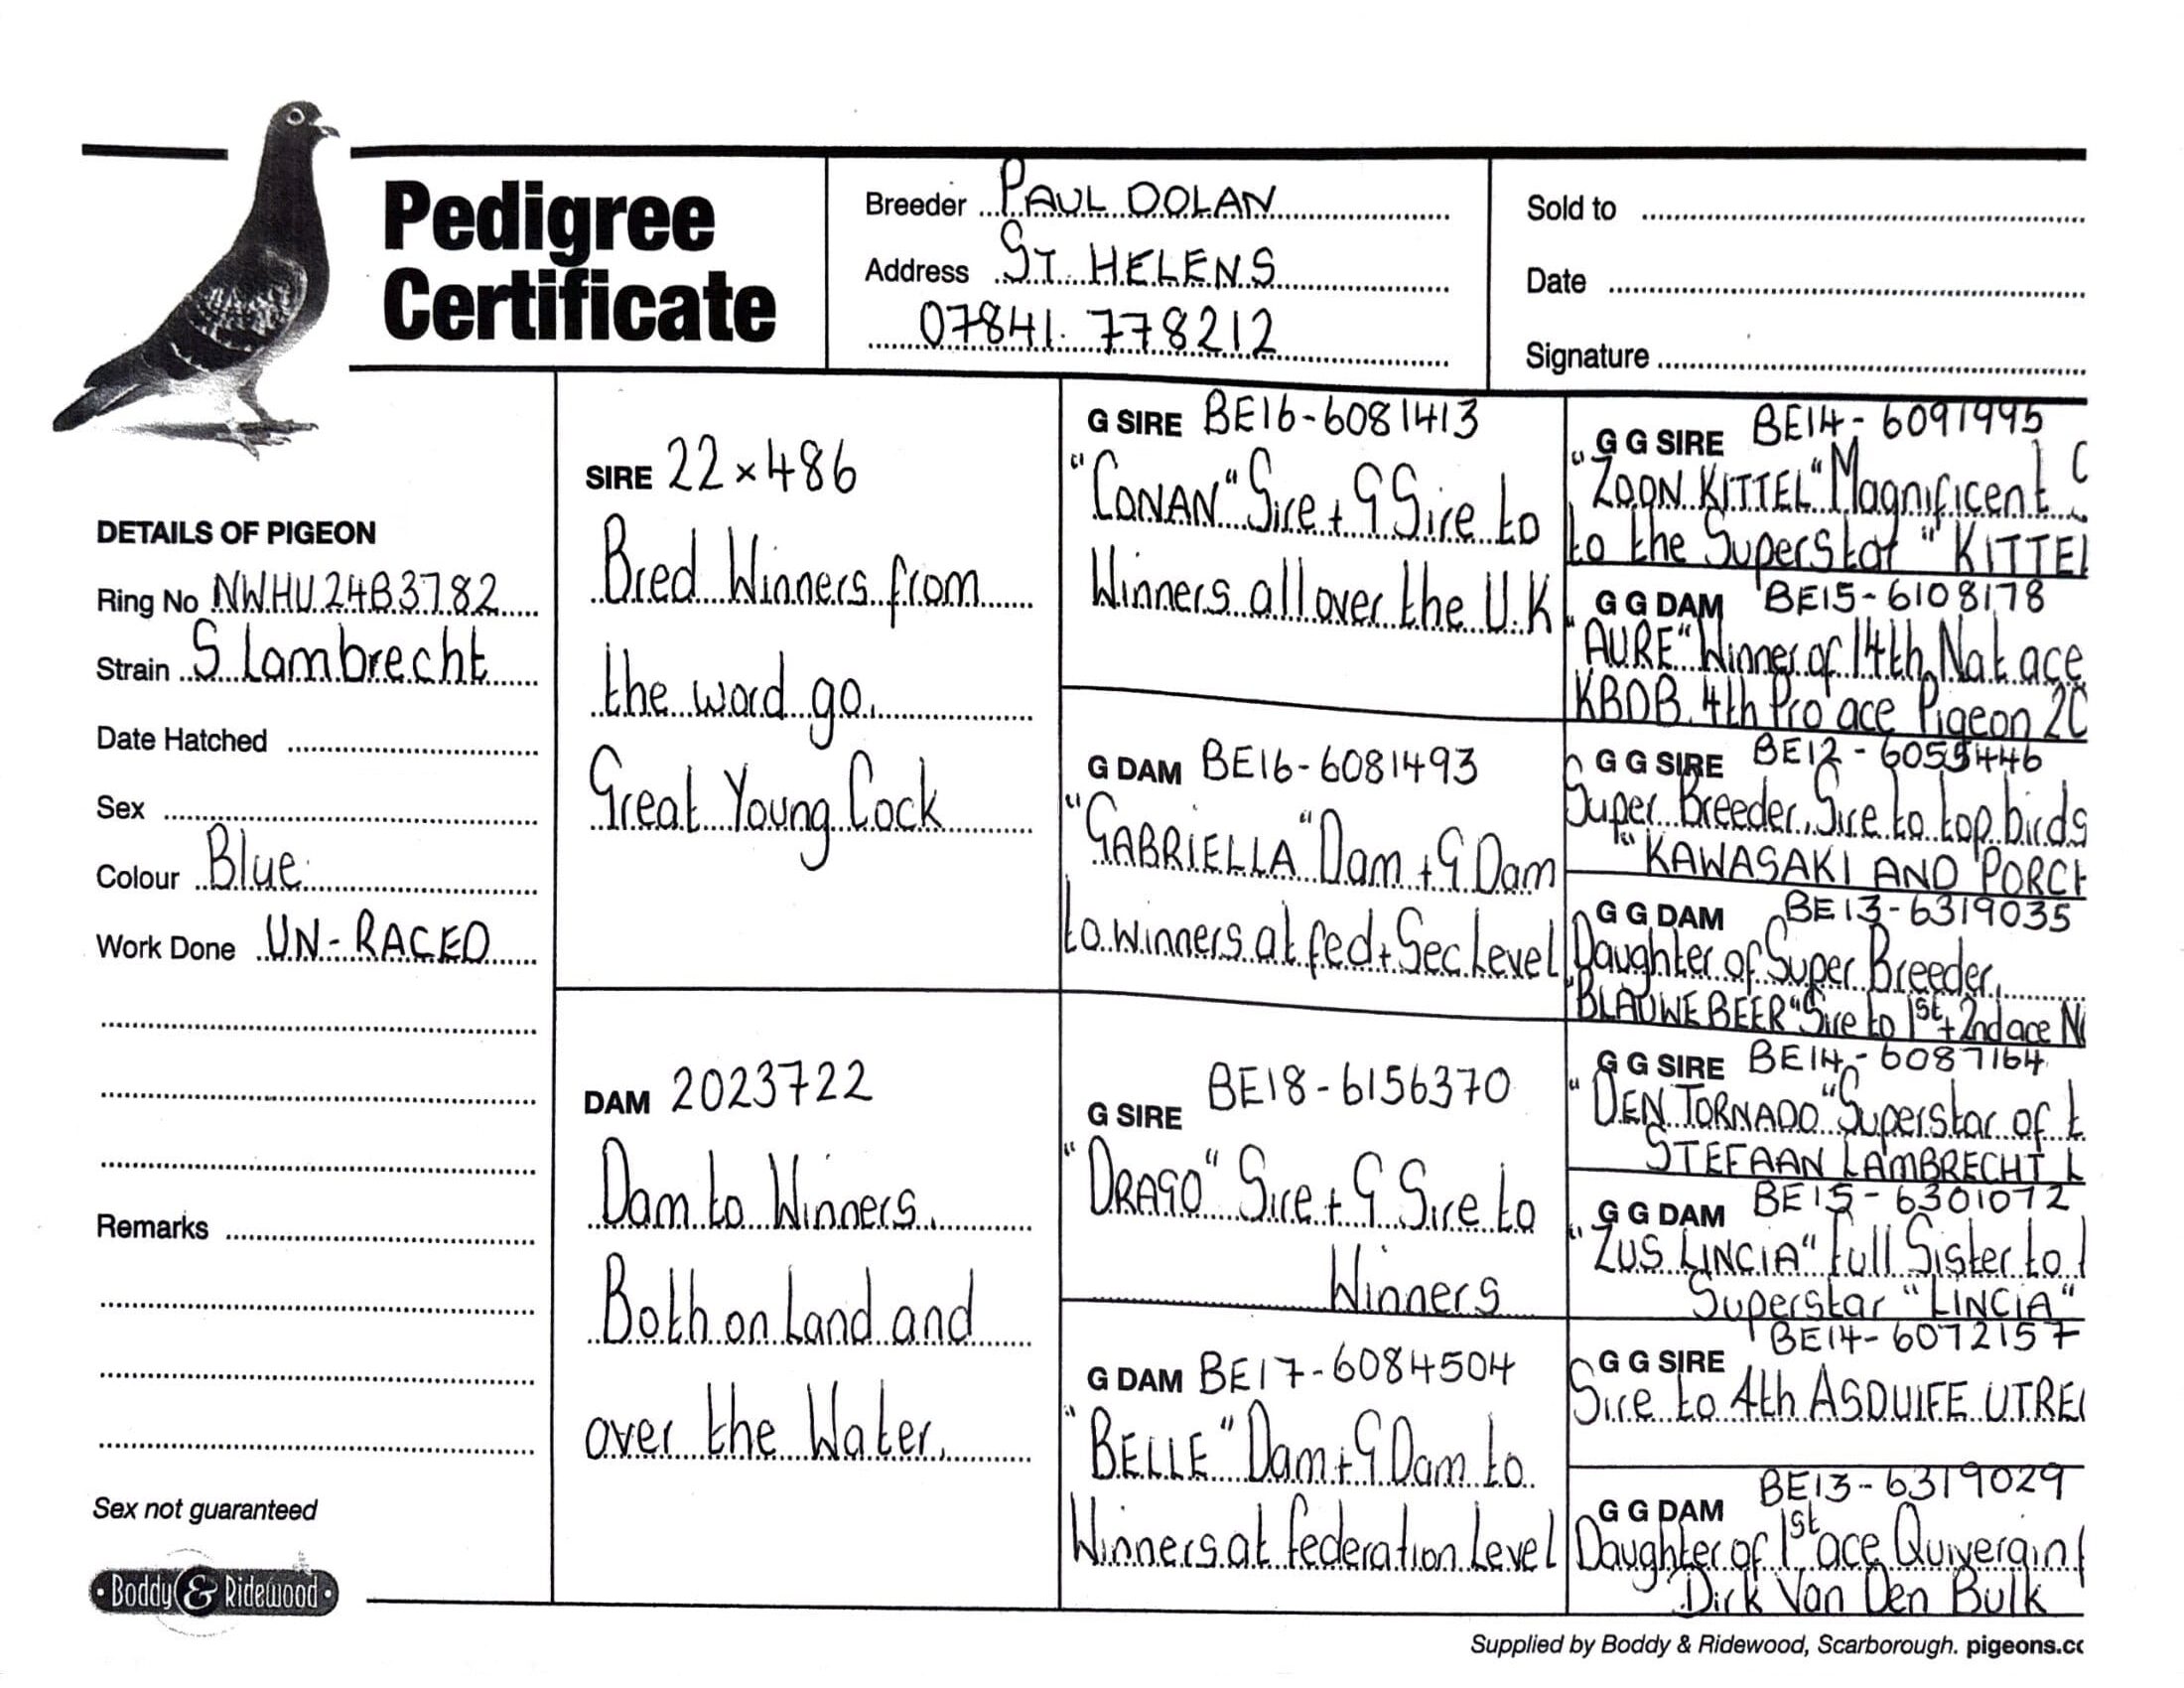 Pedigree
Certificate
Breeder PAUL DOLAN
Address ST HELENS
07841 778212
Sold to
Date
Signature
DETAILS OF PIGEON
Ring No NWHU24B3782
Strain S Lambrecht
Date Hatched
Sex
Colour Blue
Work Done UN-RACED
Remarks
Sex not guaranteed
Boddy & Ridewood
SIRE 22x486
Bred Winners from
the word go.
Great Young Cock
DAM 2023722
Dam to Winners
Both on Land and
over the Water.
G SIRE BE16-6081413
"CONAN" Sire + G Sire to
Winners all over the U.K
G DAM BE16-6081493
"GABRIELLA" Dam + G Dam
to winners at fed + Sec Level
G SIRE BE18-6156370
"DRAGO" Sire + G Sire to
Winners
G DAM BE17-6084504
"BELLE" Dam + G Dam to
Winners at federation Level
G G SIRE BE14-6091995
"ZOON KITTEL" Magnificent
to the Superstar "KITTEL
G G DAM BE15-6108178
"AURE" Winner of 14th Nat ace
KBDB 4th Pro ace Pigeon 20
G G SIRE BE12-6055446
Super Breeder, Sire to top birds
"KAWASAKI AND PORCH
G G DAM BE13-6319035
Daughter of Super Breeder
"BLAUWE BEER" Sire to 1st + 2nd ace N
G G SIRE BE14-6087164
"DEN TORNADO" Superstar of t
STEFAAN LAMBRECHT L
G G DAM BE15-6301072
"ZUS LINCIA" full Sister to
Superstar "LINCIA"
G G SIRE BE14-6072157
Sire to 4th ASDUIFE UTREC
G G DAM BE13-6319029
Daughter of 1st ace Quivergin
Dirk Van Den Bulk
Supplied by Boddy & Ridewood, Scarborough. pigeons.cc